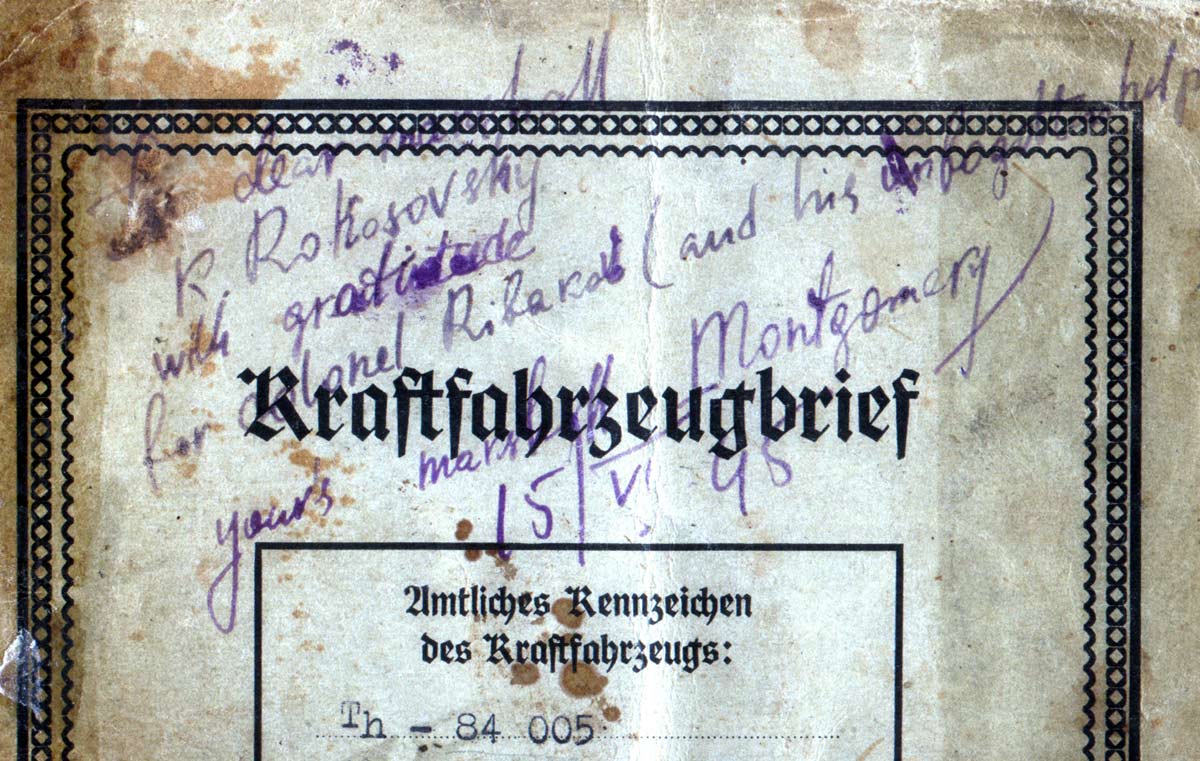 To dear marshall
K. Rokosovsky
with gratitude
for colonel Ribakov (and his help
yours marshall Montgomery)
15/VI 45
Kraftfahrzeugbrief
Amtliches Kennzeichen
des Kraftfahrzeugs:
Th - 84 005